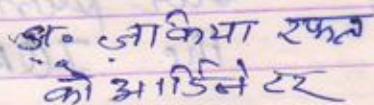 डॉ॰ ज़ाकिया रफत
को आर्डिनेटर